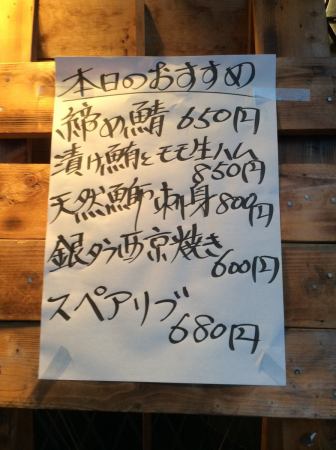 本日のおすすめ
締め鯖 650円
漬け鮪とモモ生ハム
850円
天然鰤刺身 800円
銀タラ西京焼き
600円
スペアリブ
680円